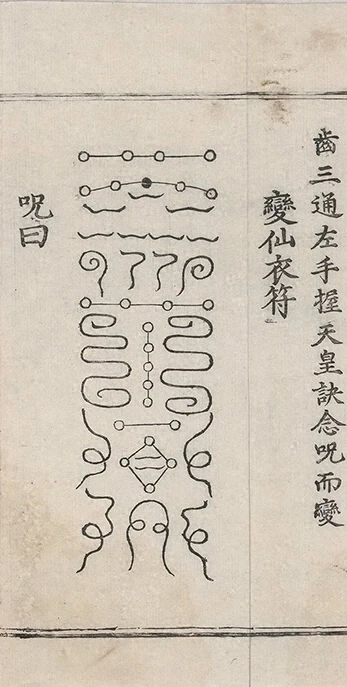 齒三通左手握天皇訣念呪而變
變仙衣符
呪曰